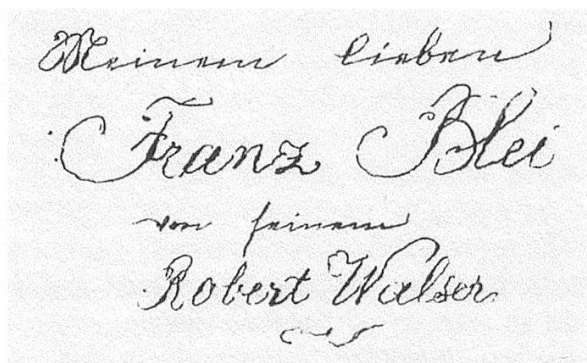 Meinem lieben
Franz Blei
von seinem
Robert Walser